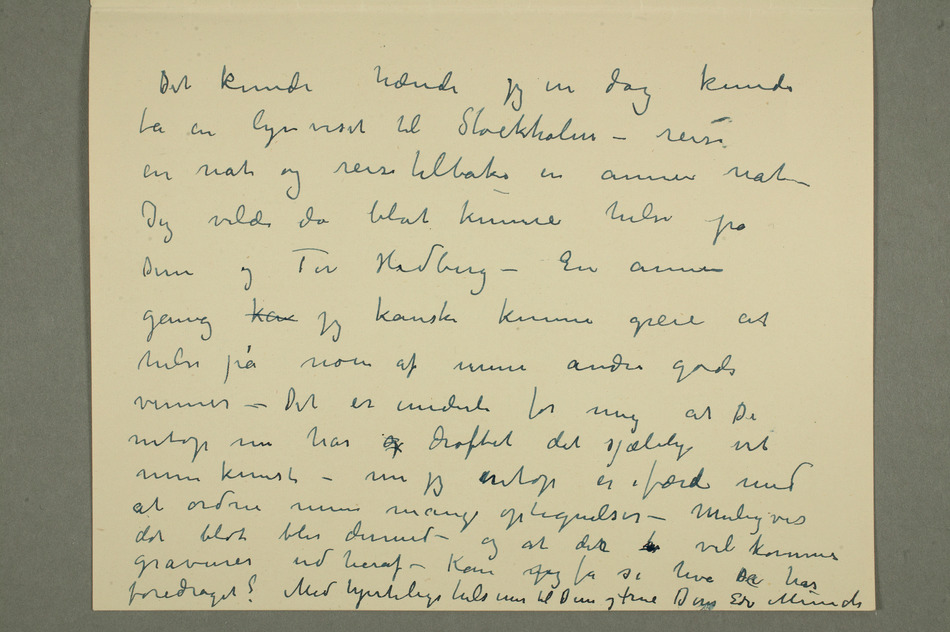 Det kunde hænde jeg en dag kunde
ta en lynvisit til Stockholm – reise
en nat og reise tilbake en annen nat –
Jeg vilde da blot kunne hilse på
Dem og Tor Hedberg – En annen
gang kan jeg kanske kunne greie at
hilse på noen af mine andre gode
venner – Det er underlig for mig at De
netop nu har og drøftet det sjælelige ved
min kunst – nu jeg netop er ifærd med
at ordne mine mange optegnelser – Muligvis
det blot blir dermed – og at der vil komme
gravurer ud heraf – Kan jeg få se hva De har
foredraget? Med hjerteligs hilsener til Dem og Frue Deres Edv Munch